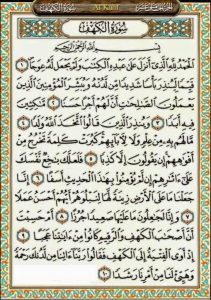 سُورَةُ الكَهْفِ Al-Kahf الجزء الخامس عشر
سُورَةُ الكَهْفِ
بِسْمِ اللَّهِ الرَّحْمَٰنِ الرَّحِيمِ
ٱلْحَمْدُ لِلَّهِ ٱلَّذِىٓ أَنزَلَ عَلَىٰ عَبْدِهِ ٱلْكِتَٰبَ وَلَمْ يَجْعَل لَّهُۥ عِوَجَا ۜ ١
قَيِّمًا لِّيُنذِرَ بَأْسًا شَدِيدًا مِّن لَّدُنْهُ وَيُبَشِّرَ ٱلْمُؤْمِنِينَ ٱلَّذِينَ
يَعْمَلُونَ ٱلصَّٰلِحَٰتِ أَنَّ لَهُمْ أَجْرًا حَسَنًا ٢ مَّٰكِثِينَ
فِيهِ أَبَدًا ٣ وَيُنذِرَ ٱلَّذِينَ قَالُوا۟ ٱتَّخَذَ ٱللَّهُ وَلَدًا ٤
مَّا لَهُم بِهِۦ مِنْ عِلْمٍ وَلَا لِءَابَآئِهِمْ كَبُرَتْ كَلِمَةً تَخْرُجُ مِنْ
أَفْوَٰهِهِمْ إِن يَقُولُونَ إِلَّا كَذِبًا ٥ فَلَعَلَّكَ بَٰخِعٌ نَّفْسَكَ
عَلَىٰٓ ءَاثَٰرِهِمْ إِن لَّمْ يُؤْمِنُوا۟ بِهَٰذَا ٱلْحَدِيثِ أَسَفًا ٦ إِنَّا
جَعَلْنَا مَا عَلَى ٱلْأَرْضِ زِينَةً لَّهَا لِنَبْلُوَهُمْ أَيُّهُمْ أَحْسَنُ عَمَلًا ٧
وَإِنَّا لَجَٰعِلُونَ مَا عَلَيْهَا صَعِيدًا جُرُزًا ٨ أَمْ حَسِبْتَ
أَنَّ أَصْحَٰبَ ٱلْكَهْفِ وَٱلرَّقِيمِ كَانُوا۟ مِنْ ءَايَٰتِنَا عَجَبًا ٩
إِذْ أَوَى ٱلْفِتْيَةُ إِلَى ٱلْكَهْفِ فَقَالُوا۟ رَبَّنَآ ءَاتِنَا مِن لَّدُنكَ رَحْمَةً
وَهَيِّئْ لَنَا مِنْ أَمْرِنَا رَشَدًا ١٠